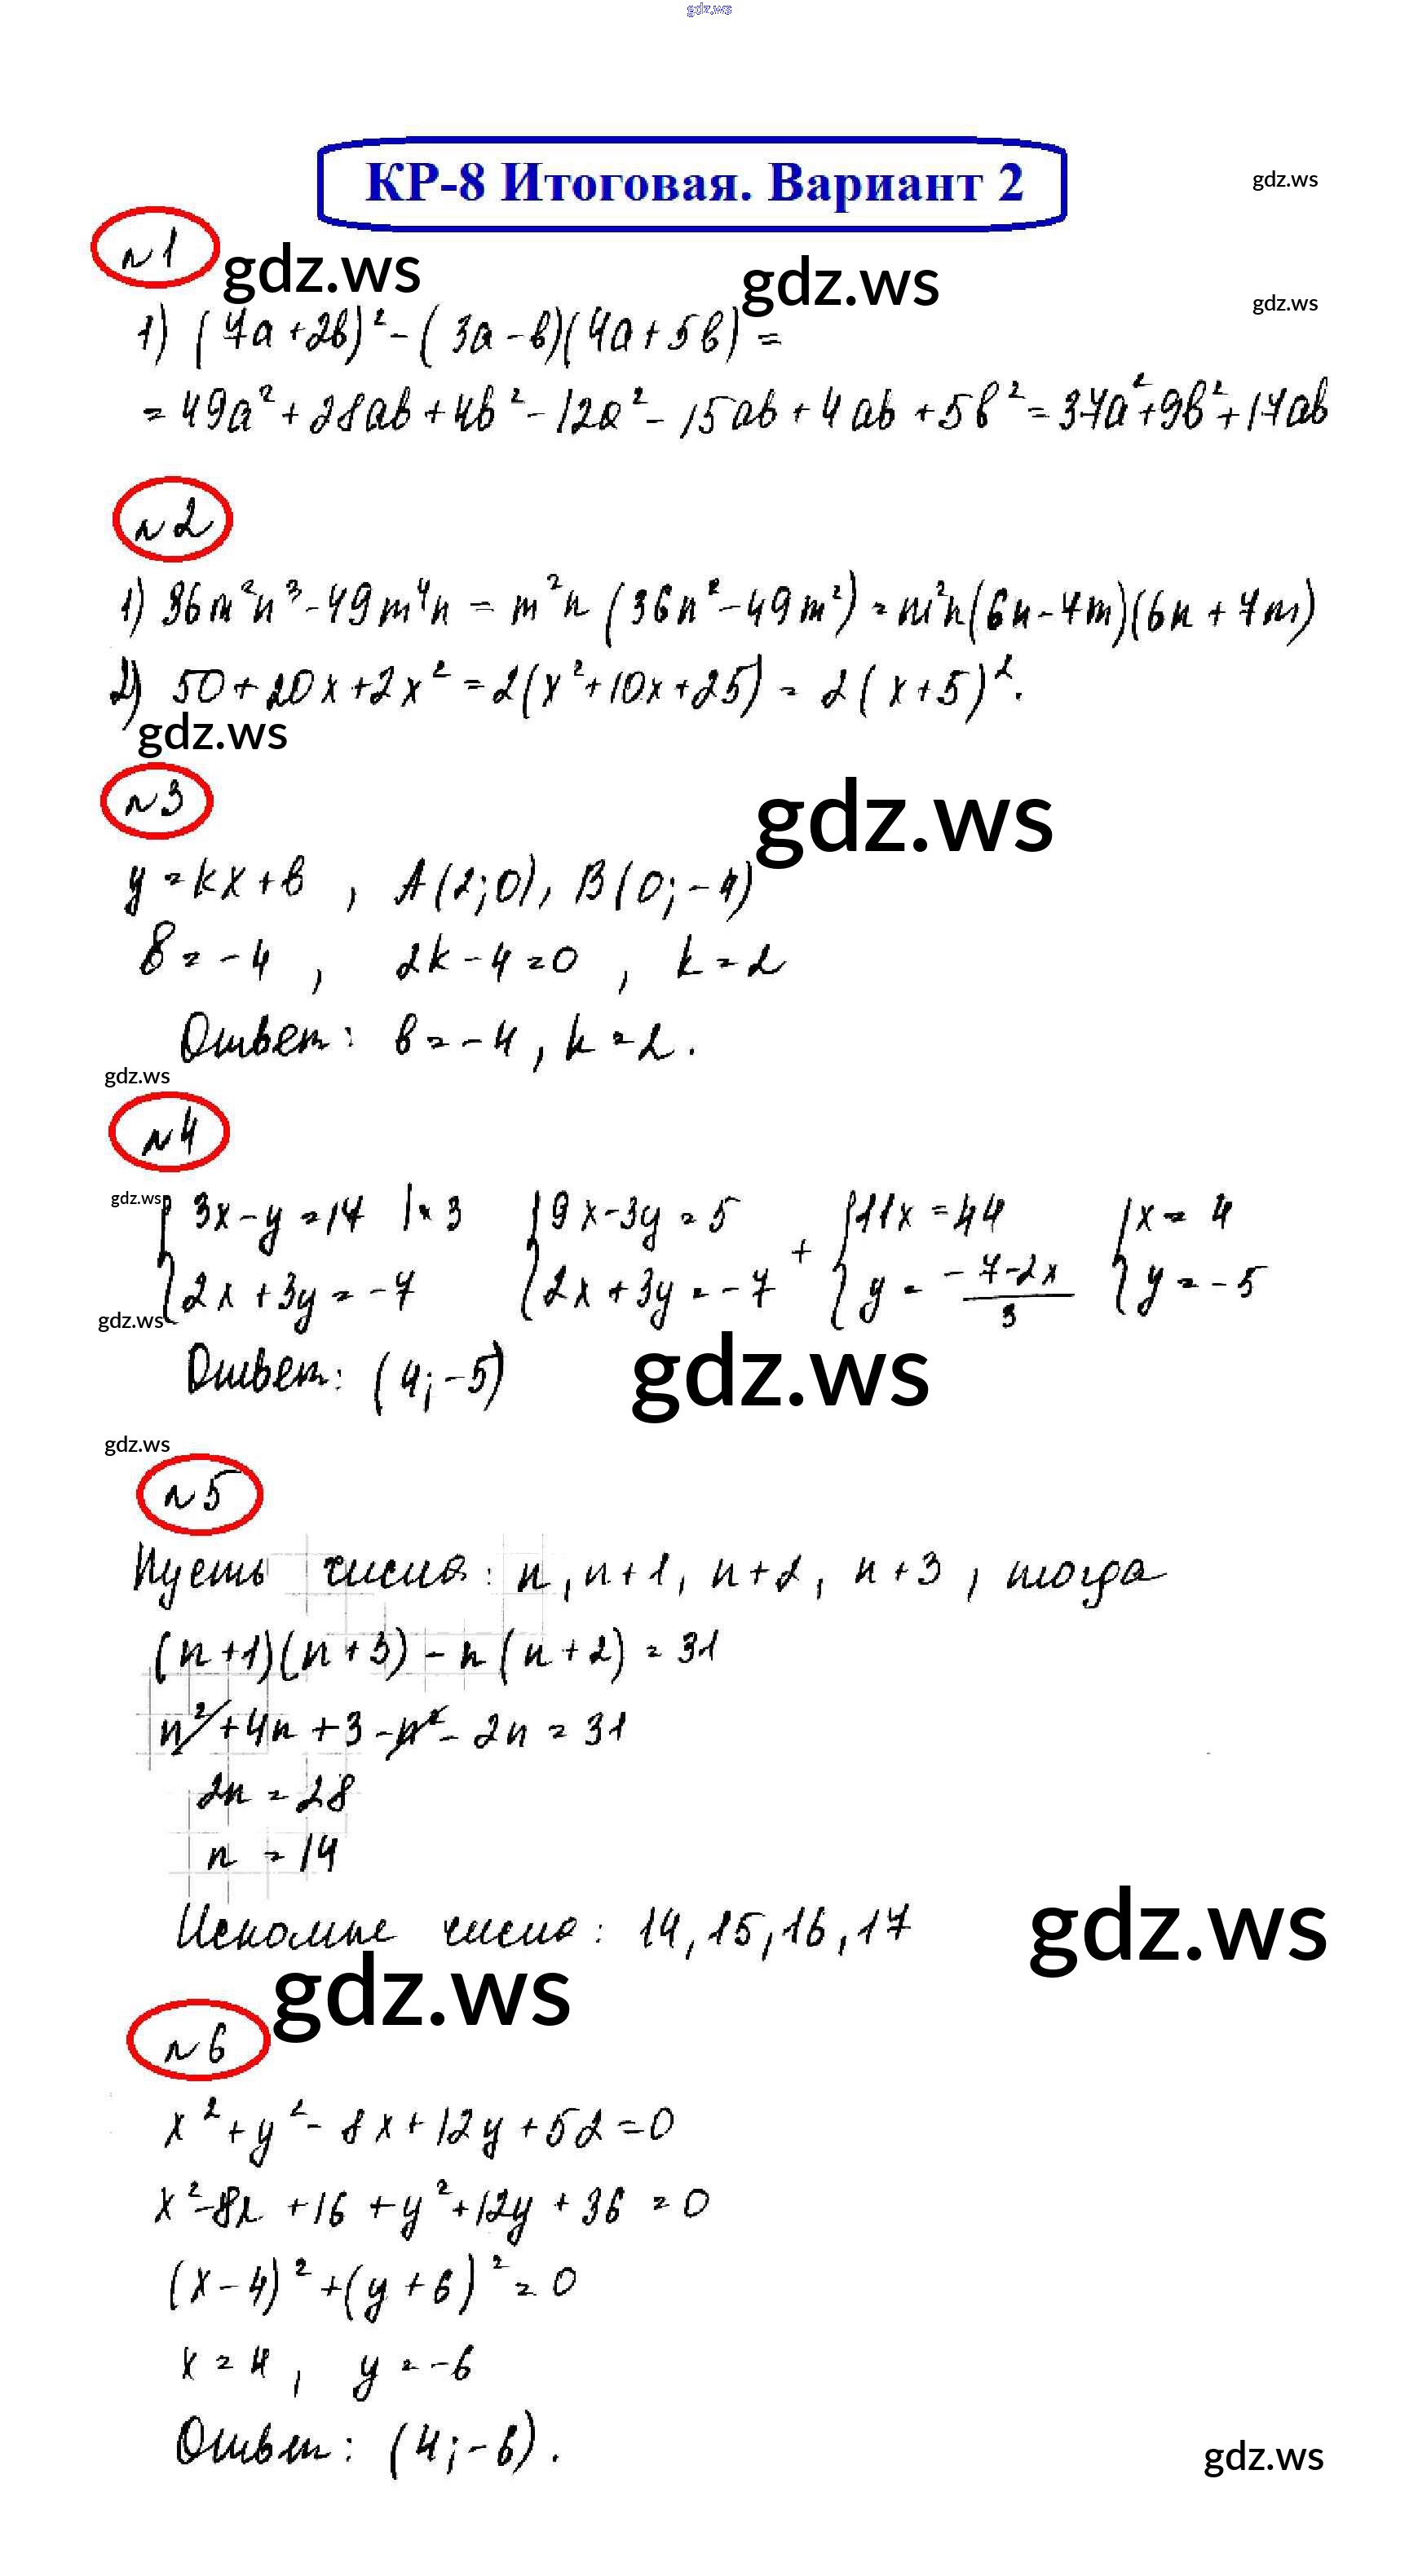 gdz.ws
КР-8 Итоговая. Вариант 2
gdz.ws
№1
gdz.ws
gdz.ws
gdz.ws
1) (7a+2b)² - (3a-b)(4a+5b) =
= 49a² + 28ab + 4b² - 12a² - 15ab + 4ab + 5b² = 37a² + 9b² + 17ab
№2
1) 36m²n³ - 49m⁴n = m²n (36n² - 49m²) = m²n(6n - 7m)(6n + 7m)
2) 50 + 20x + 2x² = 2(x² + 10x + 25) = 2(x+5)².
gdz.ws
№3
gdz.ws
y = kx + b , A(2;0), B(0;-4)
b = -4 , 2k - 4 = 0 , k = 2
Ответ: b = -4, k = 2.
gdz.ws
№4
gdz.ws
{3x - y = 17 |·3 {9x - 3y = 5 + {11x = 44 {x = 4
{2x + 3y = -7 {2x + 3y = -7 {y = (-7-2x)/3 {y = -5
gdz.ws
Ответ: (4;-5)
gdz.ws
gdz.ws
№5
Пусть числа: n, n+1, n+2, n+3, тогда
(n+1)(n+3) - n(n+2) = 31
n² + 4n + 3 - n² - 2n = 31
2n = 28
n = 14
Искомые числа: 14, 15, 16, 17
gdz.ws
gdz.ws
№6
x² + y² - 8x + 12y + 52 = 0
x² - 8x + 16 + y² + 12y + 36 = 0
(x-4)² + (y+6)² = 0
x = 4, y = -6
Ответ: (4;-6).
gdz.ws